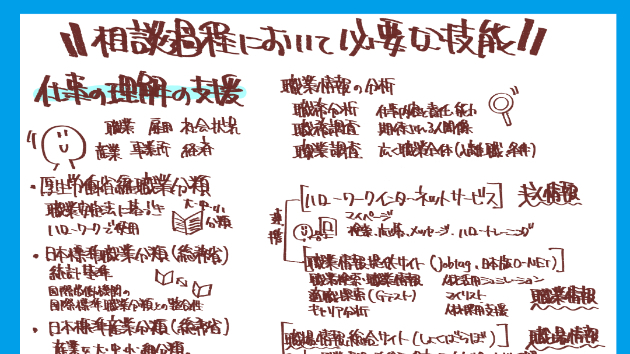 相談過程において必要な技能
仕事の理解の支援
職業 雇用 社会状況
産業 事業所 経済
・厚生労働省編職業分類
職業安定法に基づき
ハローワークで使用
大・中・小
分類
・日本標準職業分類(総務省)
統計基準
国際労働機関の
国際標準職業分類との整合性
・日本標準産業分類(総務省)
産業を大・中・小・細分類
職業情報の分析
職務分析 仕事内容と責任・能力
職務調査 期待されている人間像
職業調査 広く職業全体(入離職、条件)
連携
[ハローワークインターネットサービス] 求人情報
マイページ
検索、応募、メッセージ、ハロートレーニング
[職業情報提供サイト(Jobtag、日本版O-NET)]
職業検索・職業情報
適職探索(Gテスト) マイリスト
キャリア分析 人材採用支援
職業情報
[職場情報総合サイト(しょくばらぼ)] 職場情報